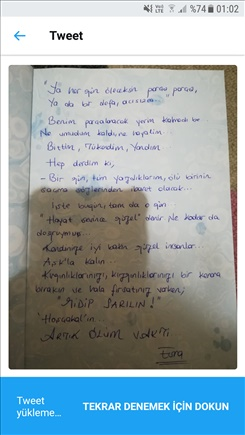 %74 01:02
Tweet
"Ya her gün ölecektin parça parça,
Ya da bir defa, acısızca..
Benim parçalanacak yerim kalmadı bir
Ne umudum kaldı ne hayalim
Bittim, Tükendim, Yandım
Hep derdim ki,
- Bir gün, tüm yazdıklarım, ölü birinin
sözlerinden ibaret olacak...
İşte bugün, tam da o gün.
"Hayat sevince güzel" denir. Ne kadar da
doğruymuş...
Kendinize iyi bakın güzel insanlar...
Aşk'la kalın...
Kırgınlıklarınızı, kızgınlıklarınızı bir kenara
bırakın ve hala fırsatınız varken,
"GİDİP SARILIN!"
Hoşçakal'ın...
ARTIK ÖLÜM VAKTİ
Esra
Tweet
yükleme...
TEKRAR DENEMEK İÇİN DOKUN